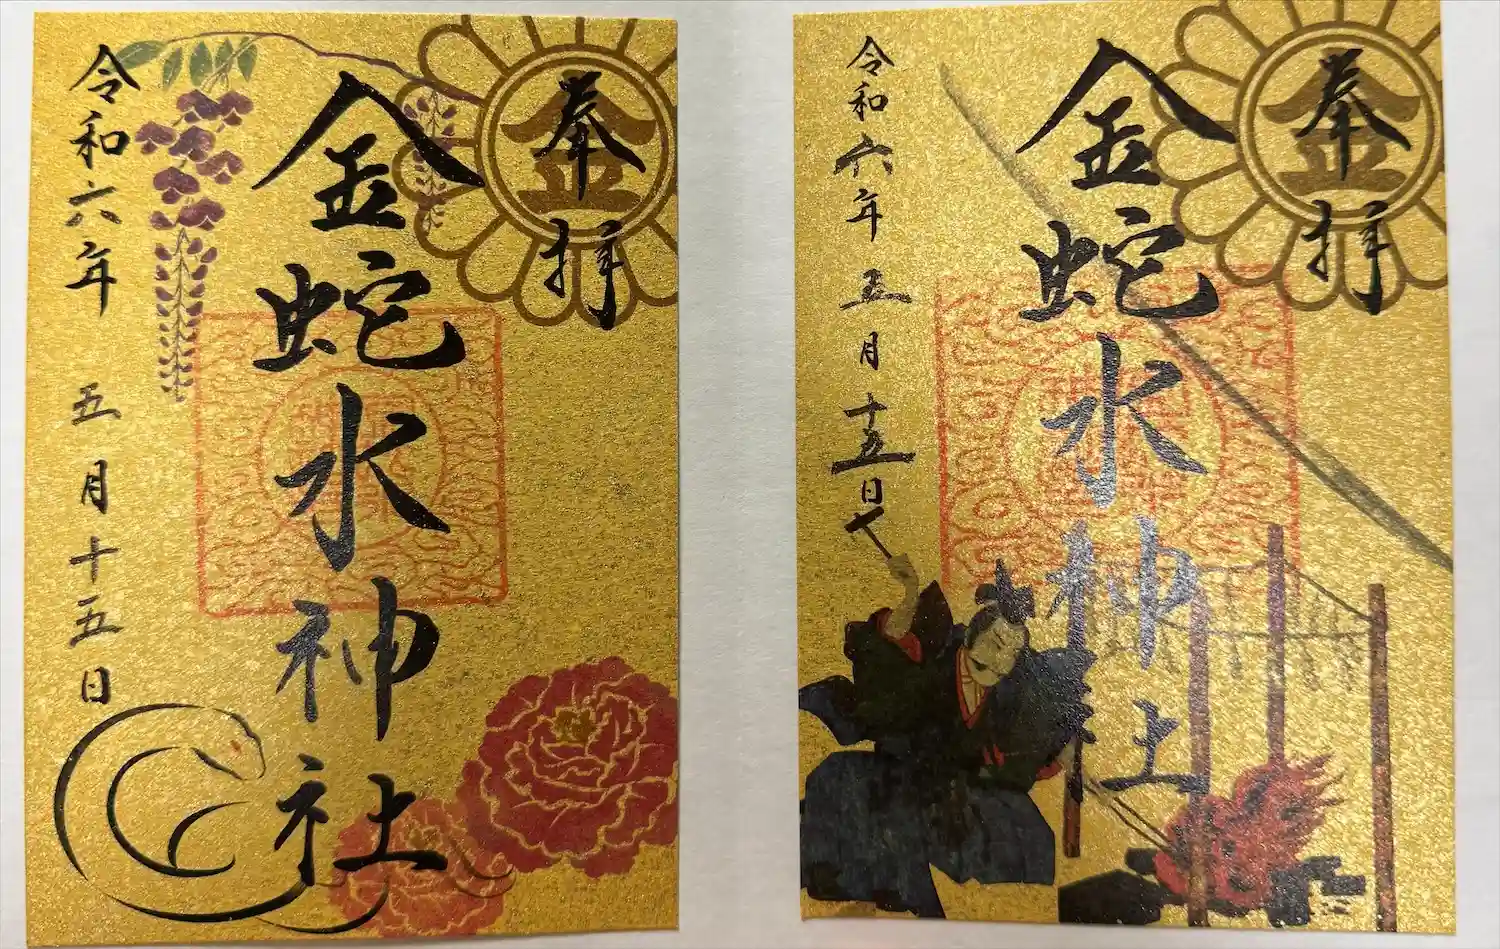 奉拝
金蛇水神社
令和六年 五月十五日
奉拝
金蛇水神社
令和六年 五月十五日